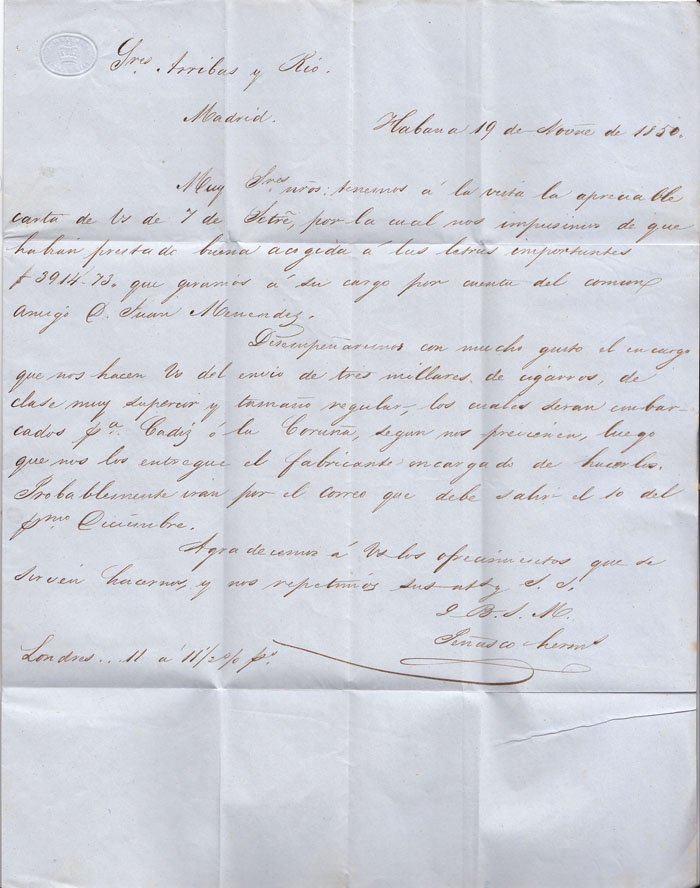 Sres. Arribas y Rió.
Madrid.
Habana 19 de Novñe de 1850.
Muy Sres nños: tenemos á la vista la apreciable
carta de Vs de 7 de Setñe, por la cual nos impusimos de que
habian prestado buena acogida á las letras importantes
3914-73. que giramos á su cargo por cuenta del comun
amigo D. Juan Menendez.
Desempeñaremos con mucho gusto el encargo
que nos hacen Vs del envio de tres millares de cigarros, de
clase muy superior y tamaño regular, los cuales seran embar-
cados pa. Cadiz ó la Coruña, segun nos previenen, luego
que nos los entregue el fabricante encargado de hacerlos.
Probablemente irán por el correo que debe salir el 10 del
pmo Diciembre.
Agradecemos á Vs los ofrecimientos que se
sirven hacernos, y nos repetimos sus atts y S. S.
Q B. S. M.
Peñasco
Londres.. 11 á 11 1/2 o/o po.